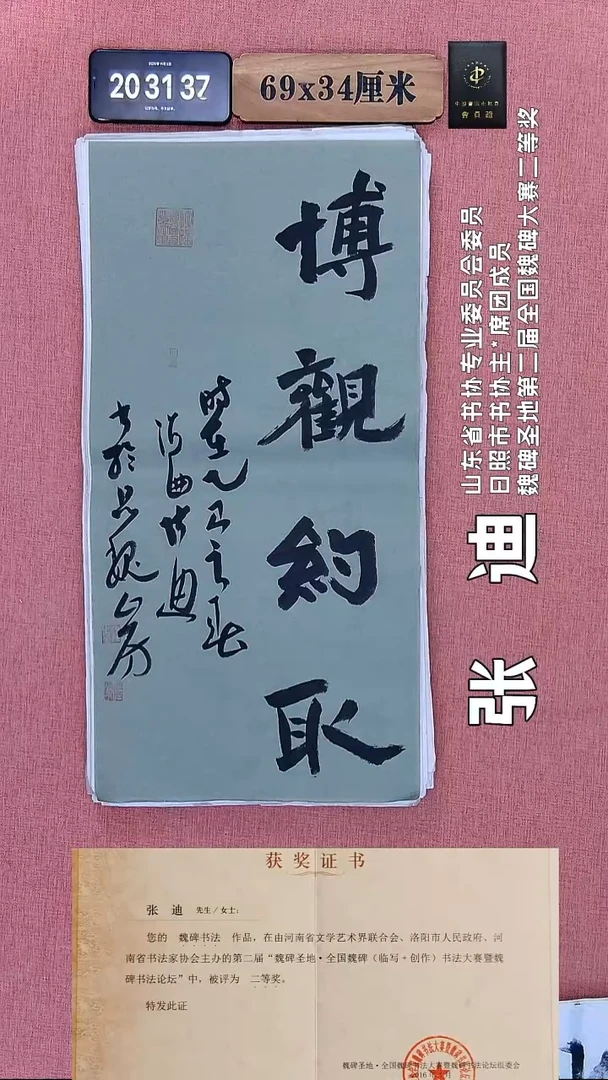 20 31 37
69x34厘米
博觀約取
時在乙巳之春
海曲張迪
山东省书协专业委员会委员
日照市书协主*席团成员
魏碑圣地第二届全国魏碑大赛二等奖
张 迪
获奖证书
张 迪 先生/女士：
您的 魏碑书法 作品，在由河南省文学艺术界联合会、洛阳市人民政府、河
南省书法家协会主办的第二届“魏碑圣地·全国魏碑（临写+创作）书法大赛暨魏
碑书法论坛”中，被评为 二等奖。
特发此证
魏碑圣地·全国魏碑书法大赛暨魏碑书法论坛组委会